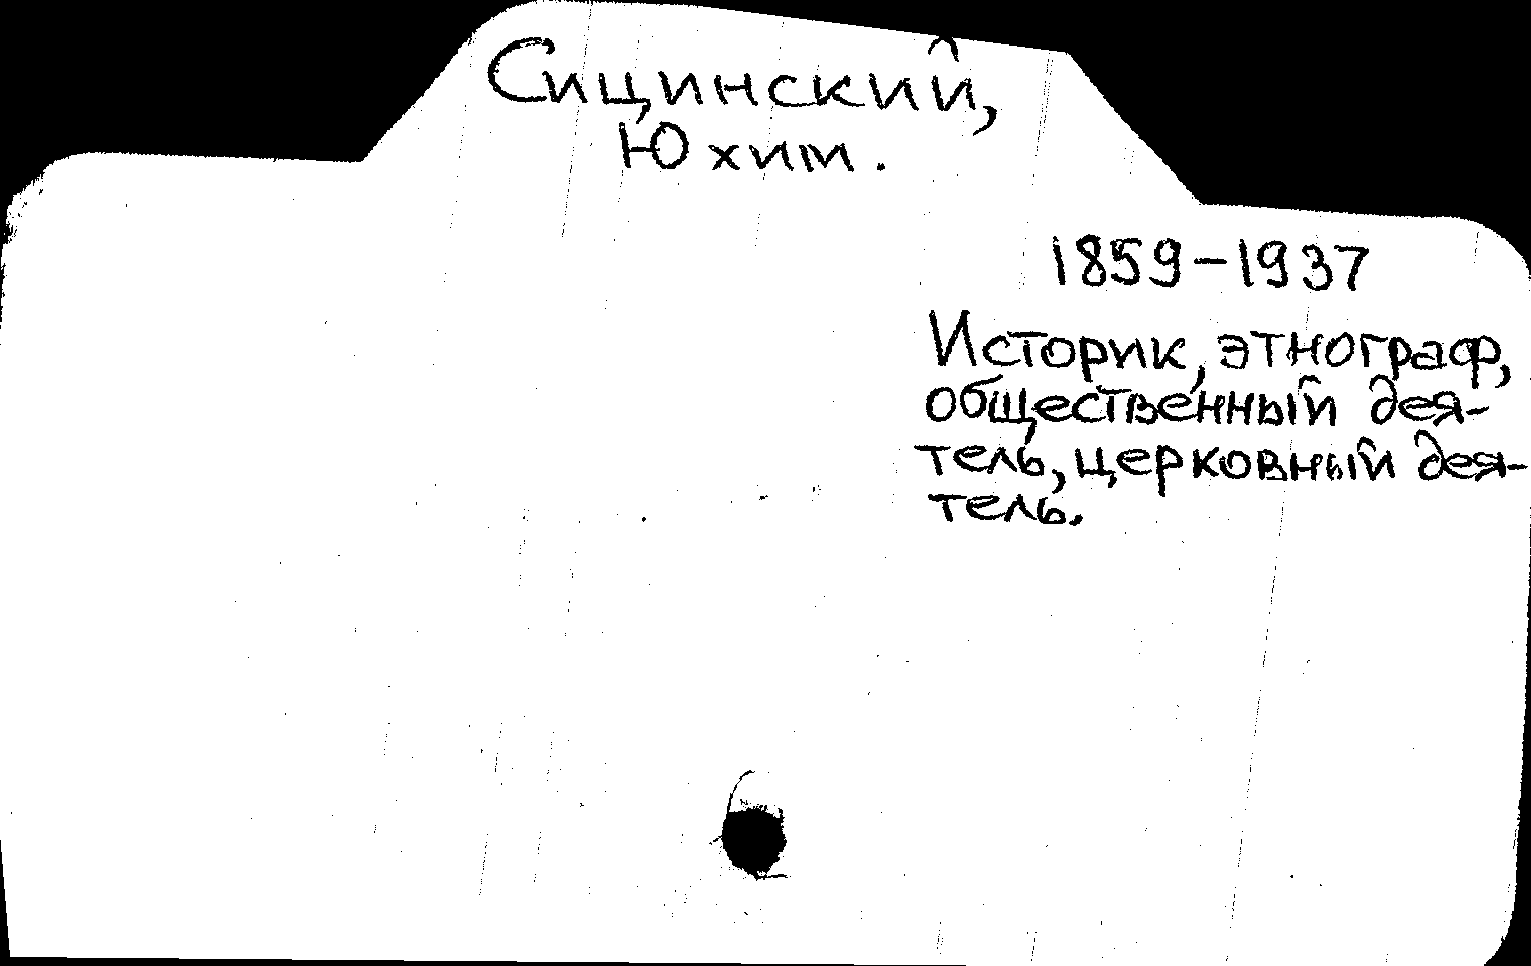 Сицинский,
Юхим.
1859-1937
Историк, этнограф,
общественный дея-
тель, церковный дея-
тель.